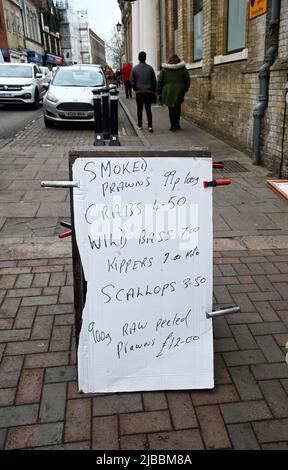 SMOKED
PRAWNS 99p 100g
CRABS 4-50
WILD BASS 7.00
KIPPERS 7.00 Kilo
SCALLOPS 3-50
900g RAW Peeled
PRAWNS £12.00